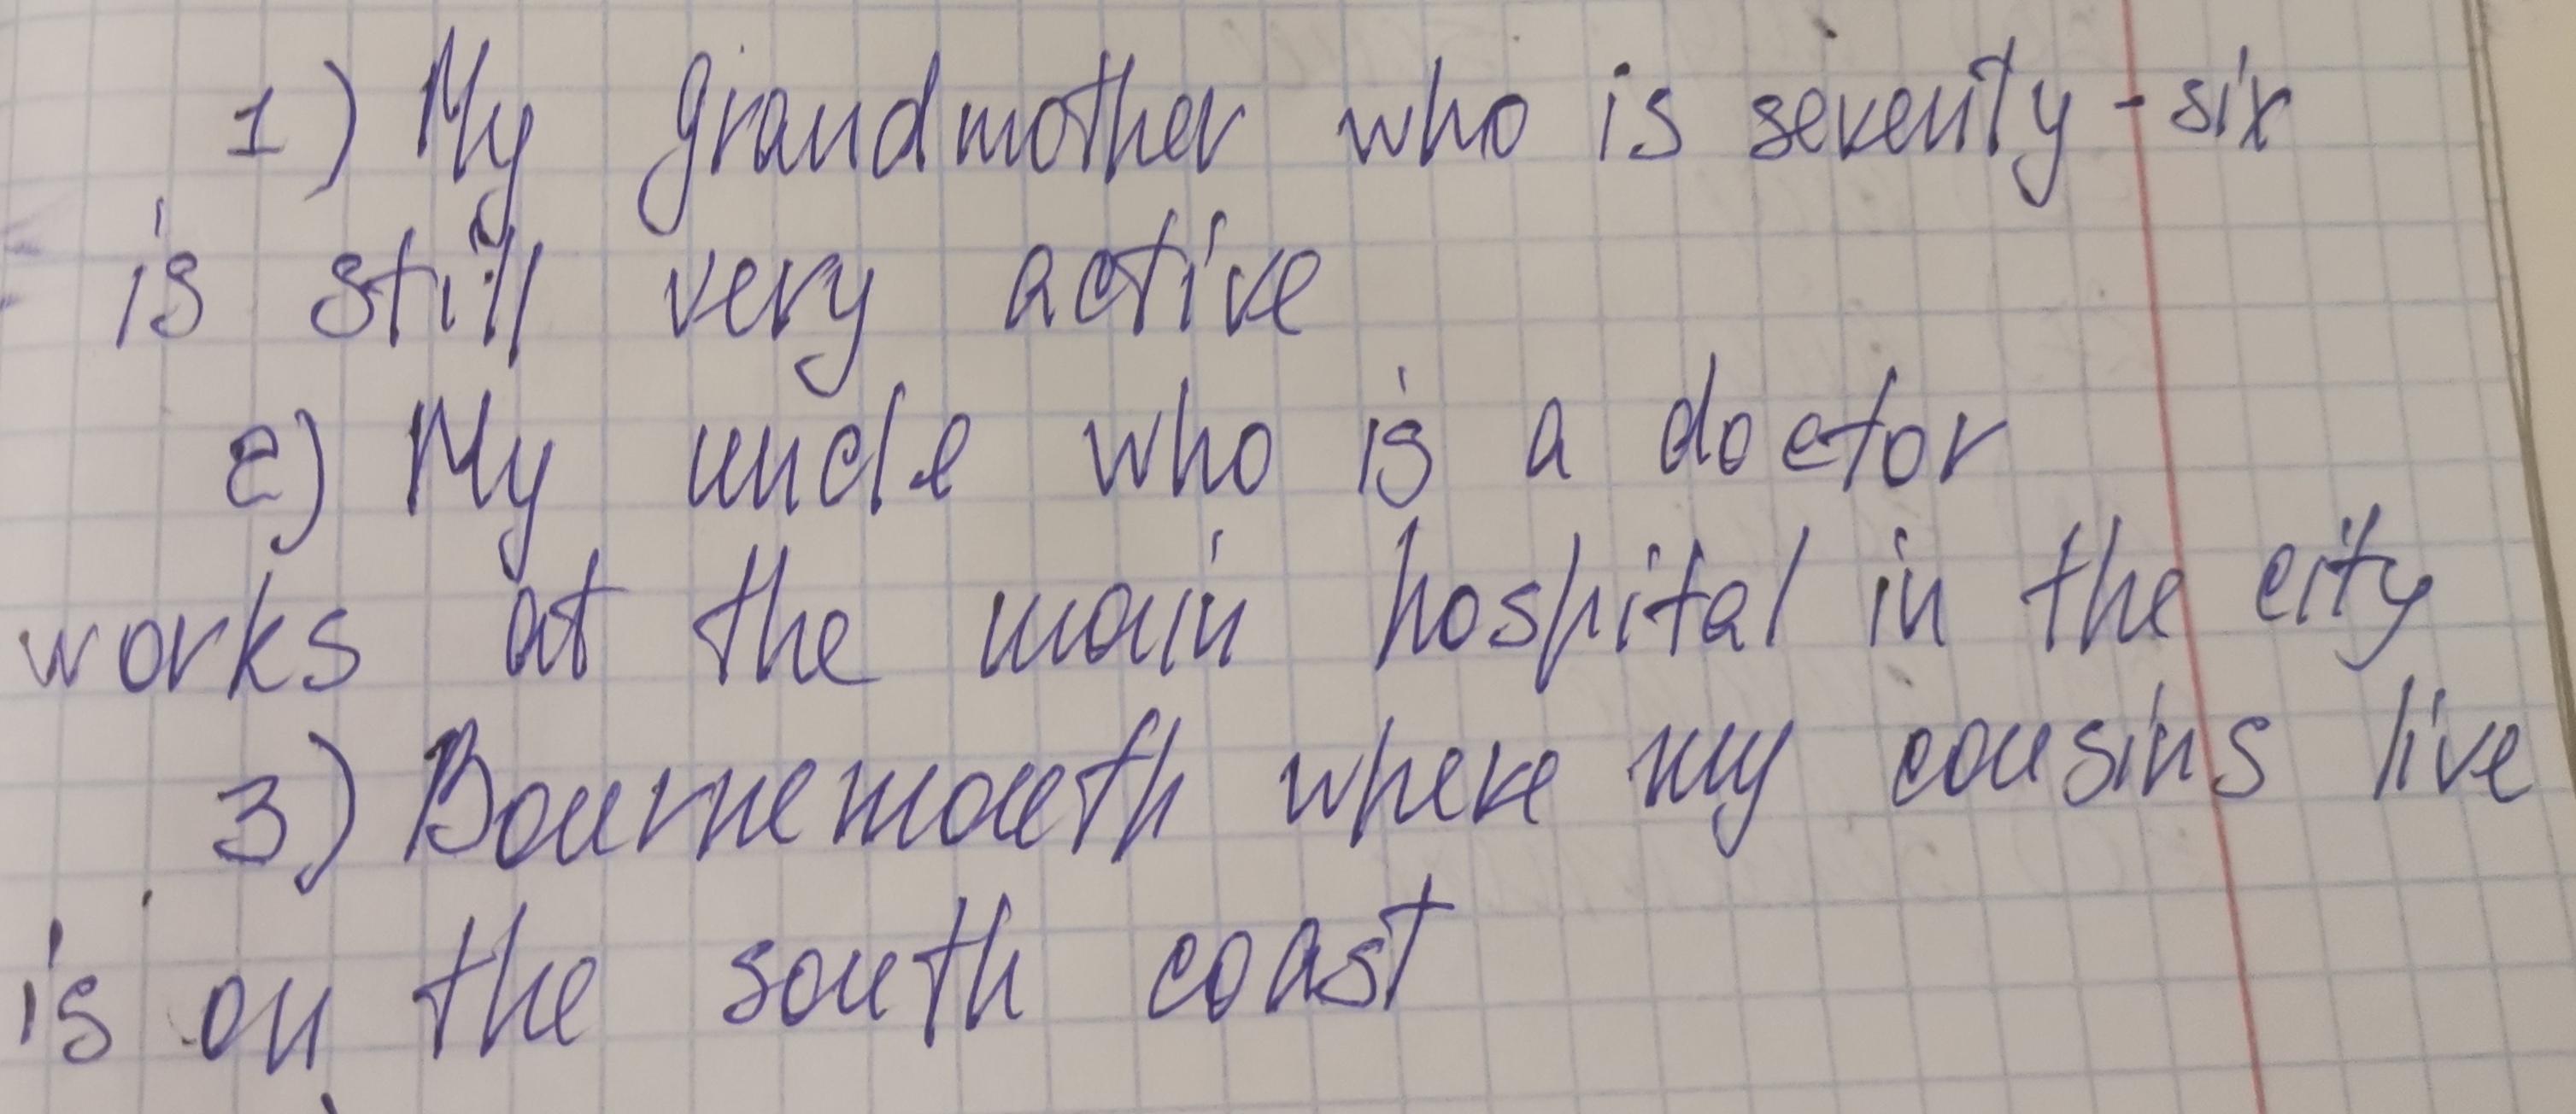 1) My grandmother who is seventy-six
is still very active
2) My uncle who is a doctor
works at the main hospital in the city
3) Bournemouth where my cousins live
is on the south coast